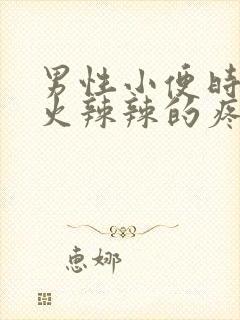 男性小便时
火辣辣的疼
惠娜